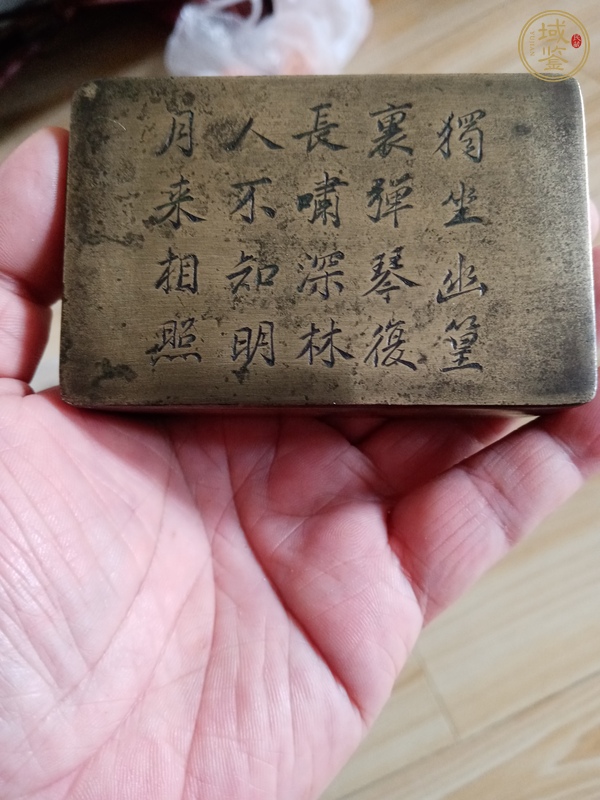 獨坐幽篁
裏弹琴復
長嘯深林
人不知明
月来相照
域鉴